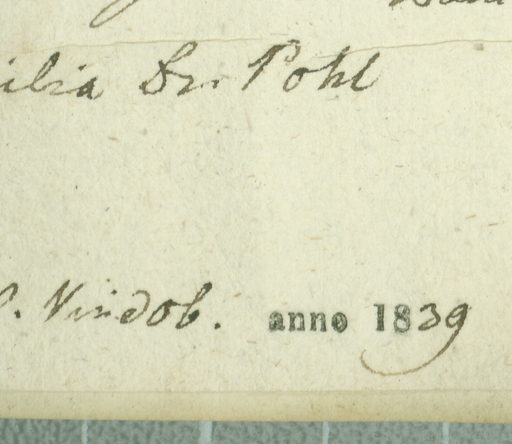 ilia Dr. Pohl
. Vindob. anno 1839